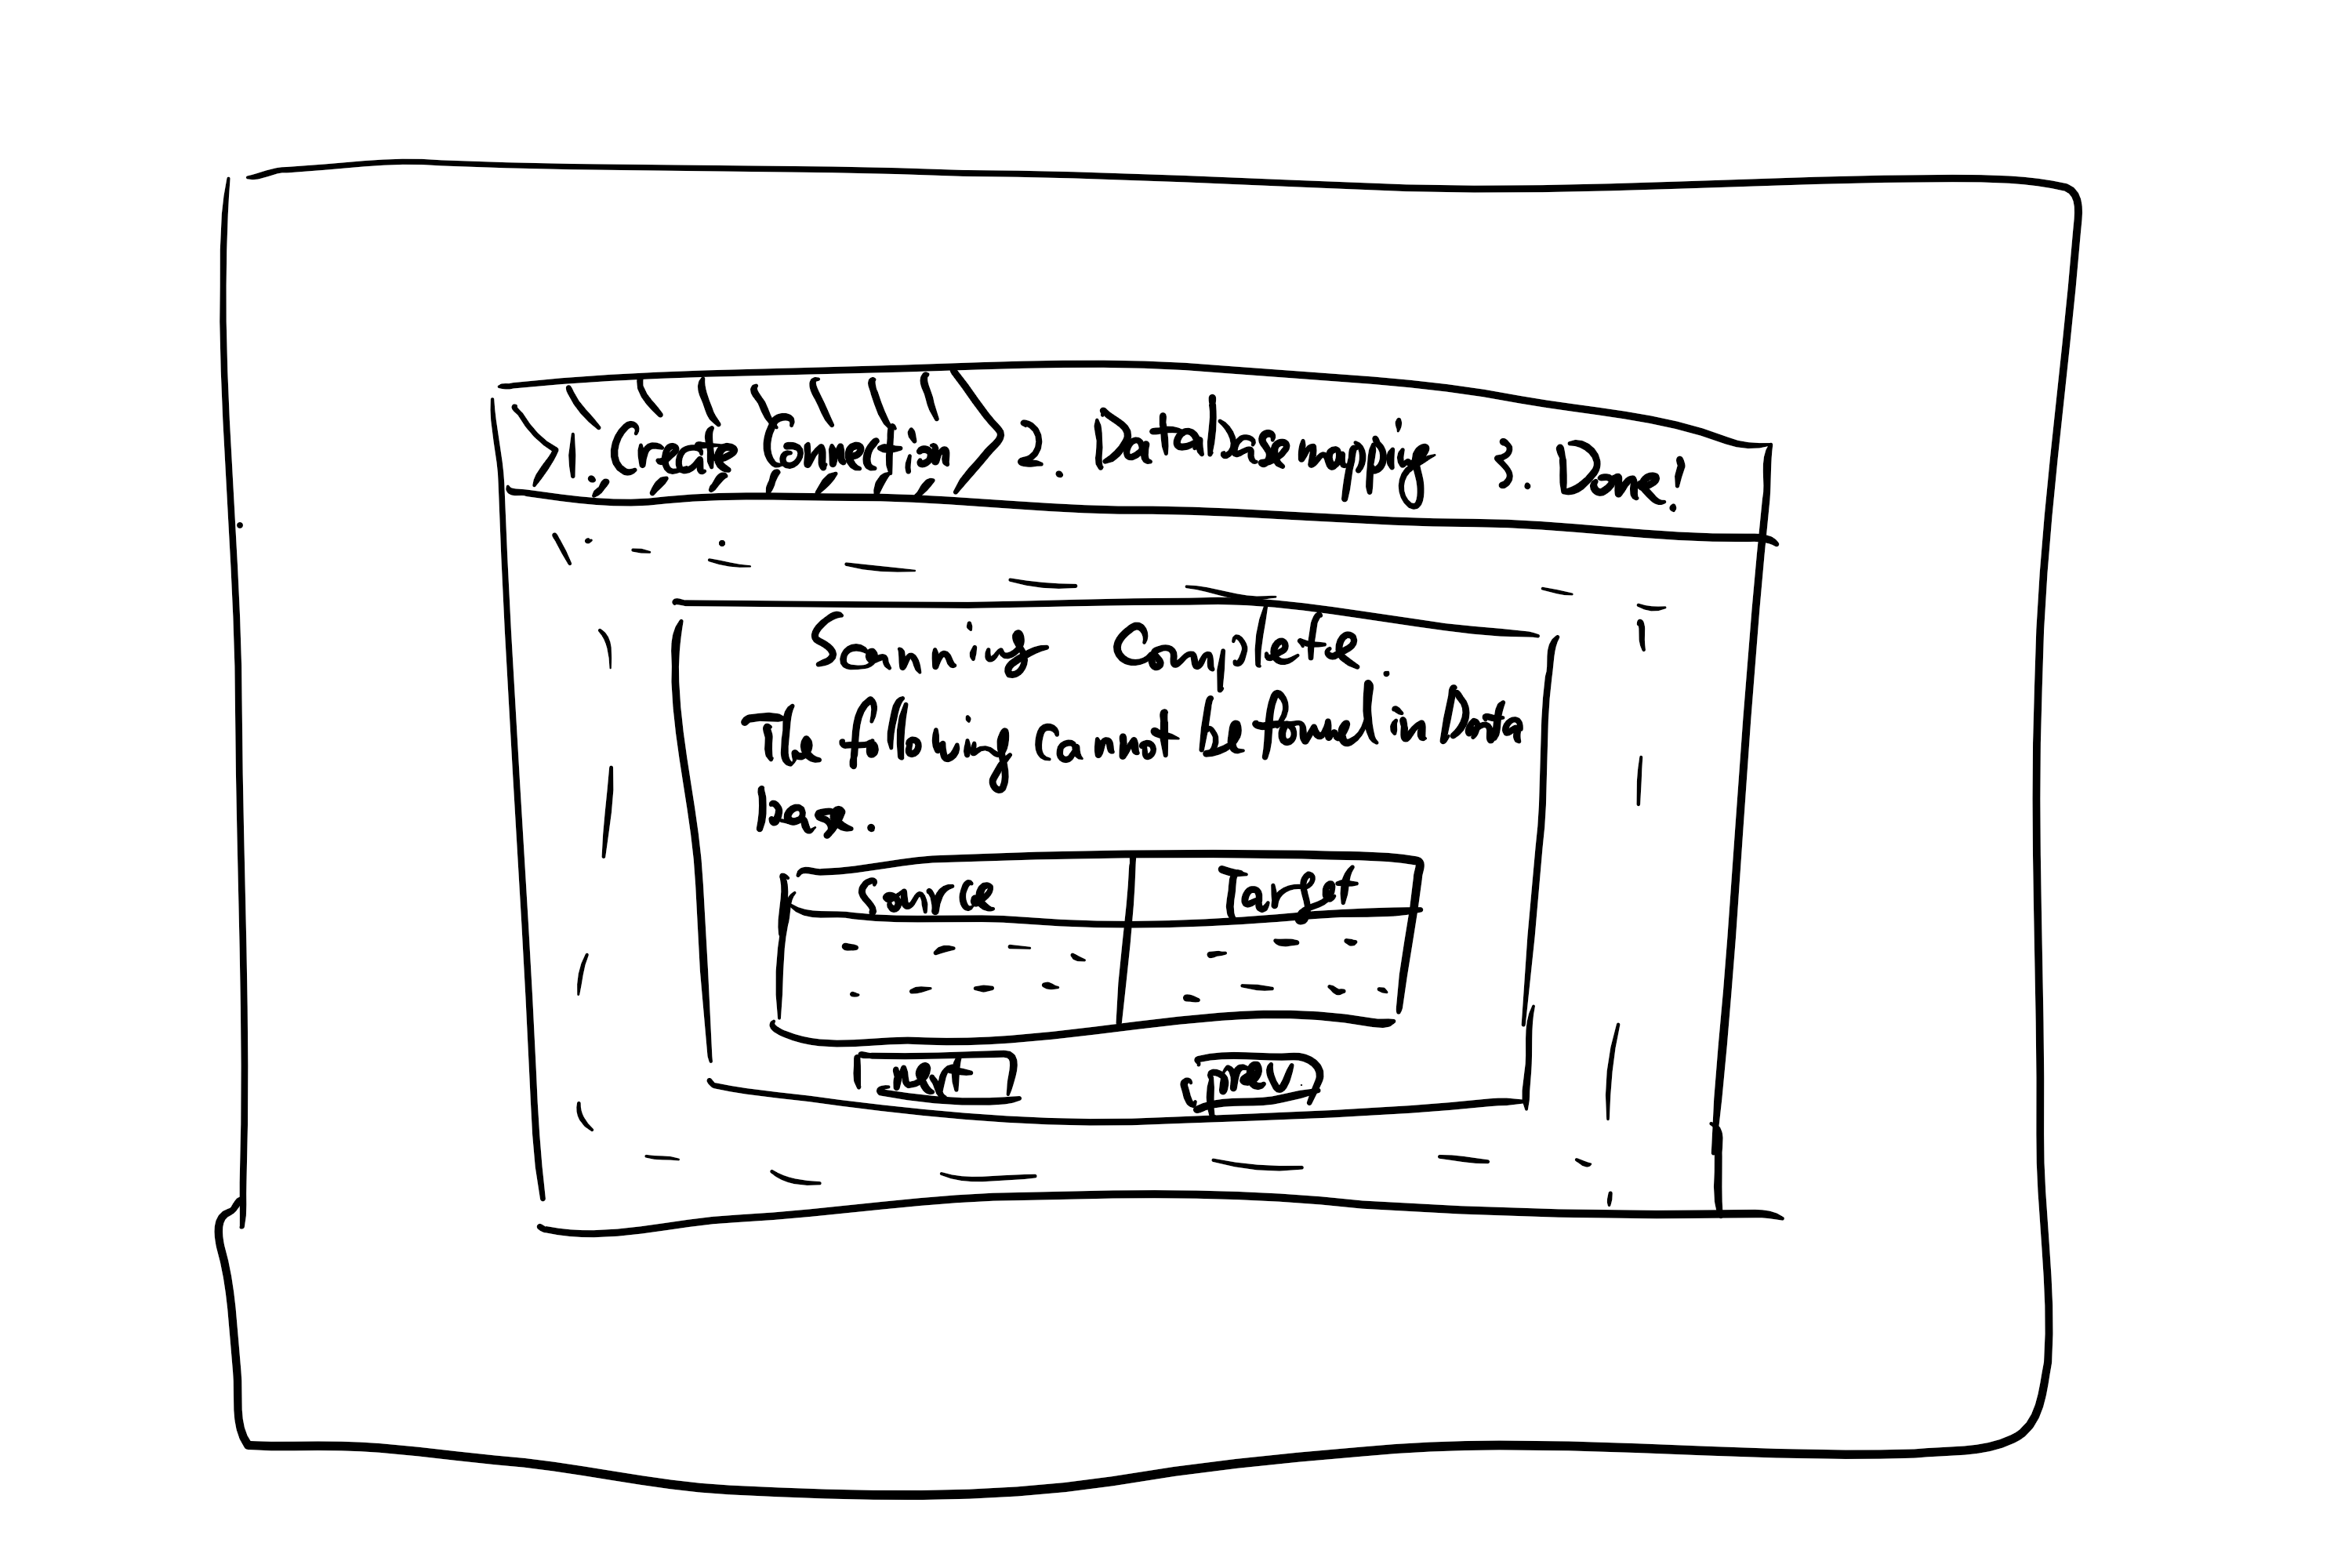 1. Create Connection 2. Database mapping 3. Done!
Scanning Complete.
The following cannot be found in Data
base.
Source Target
next prev